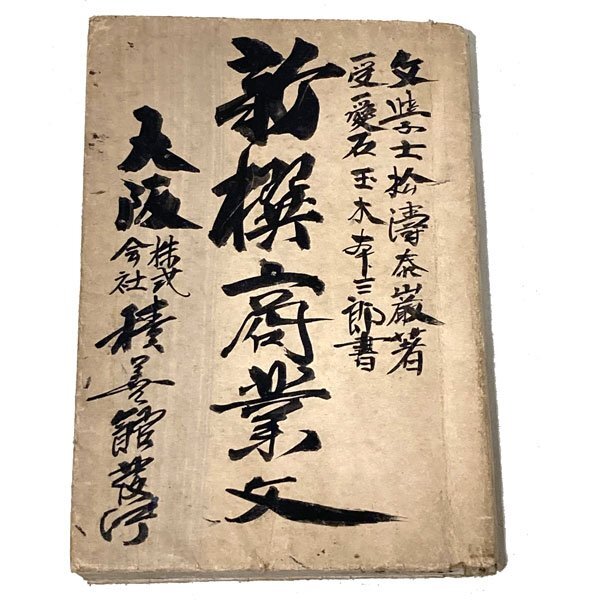 文学士松濤泰巌著
愛石玉木本三郎書
新撰商業文
大阪
株式
会社
積善館發行